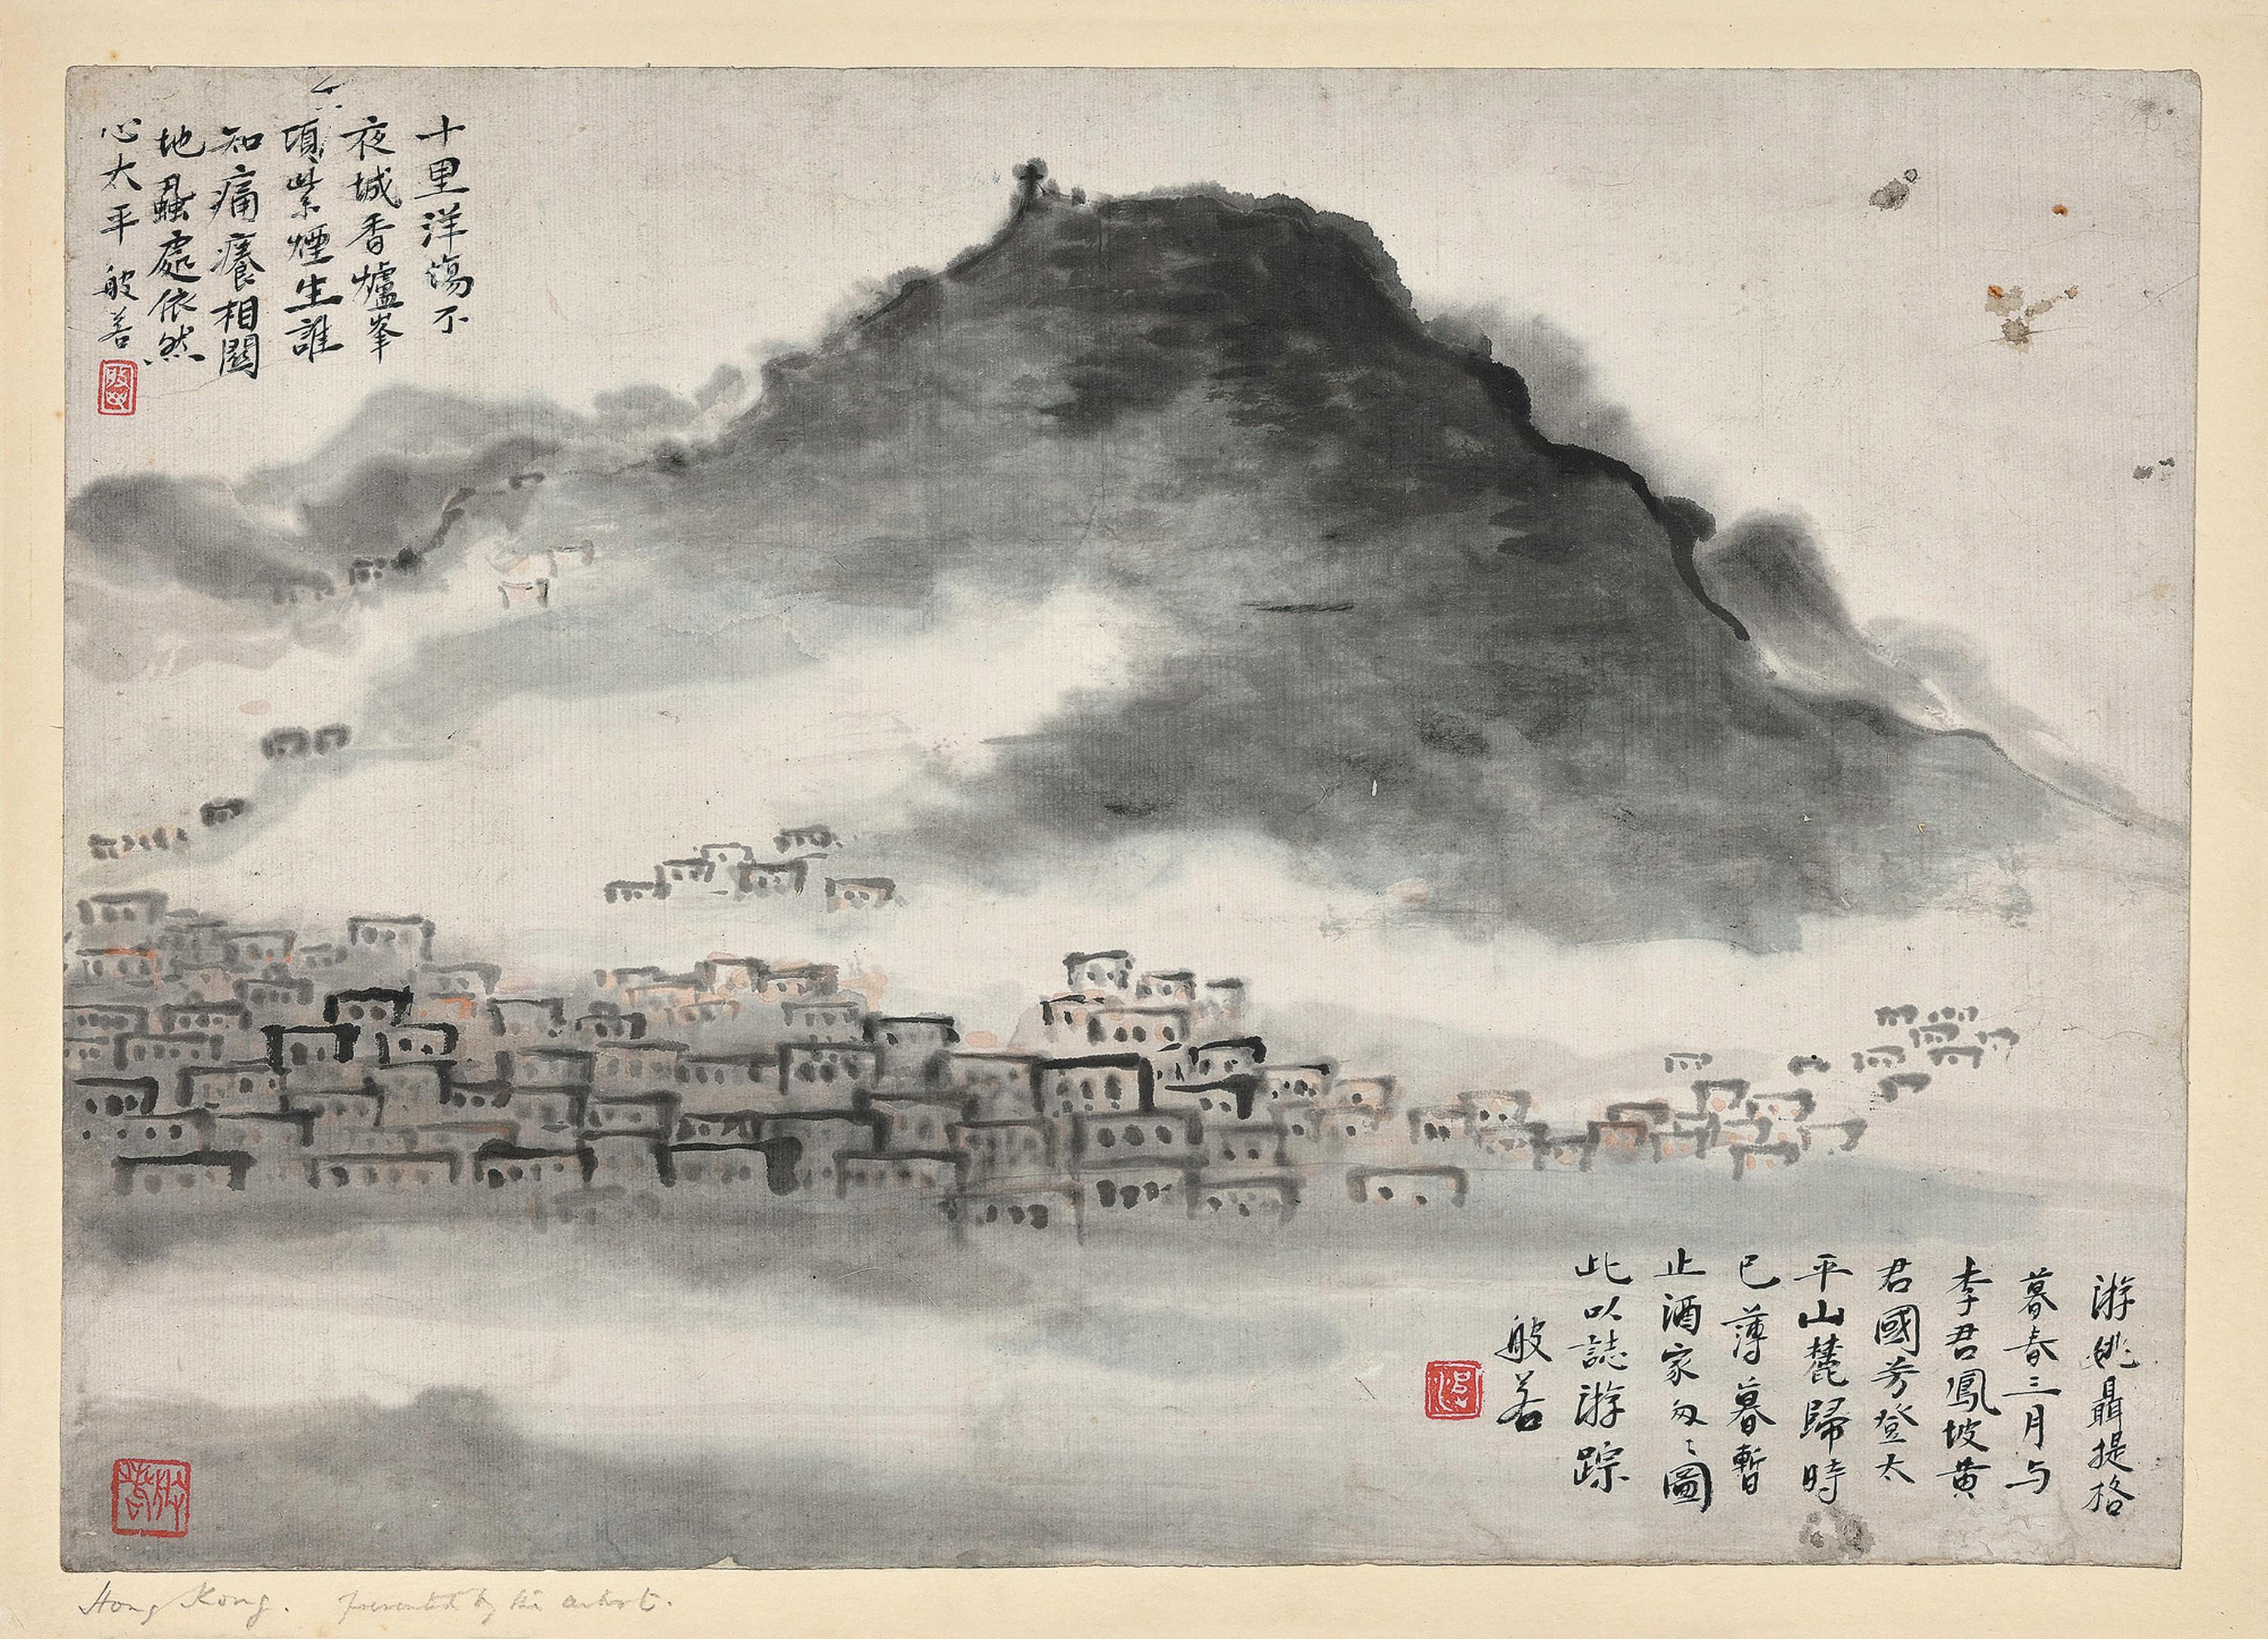 十里洋塲不
夜城香爐峯
頂紫煙生誰
知痛癢相關
地蝨處依然
心太平 般若
游聶提格
暮春三月与
李君鳳坡黄
君國芳登太
平山麓歸時
已薄暮暫
止酒家匆〻圖
此以誌游踪
般若
Hong Kong. presented by the artist.